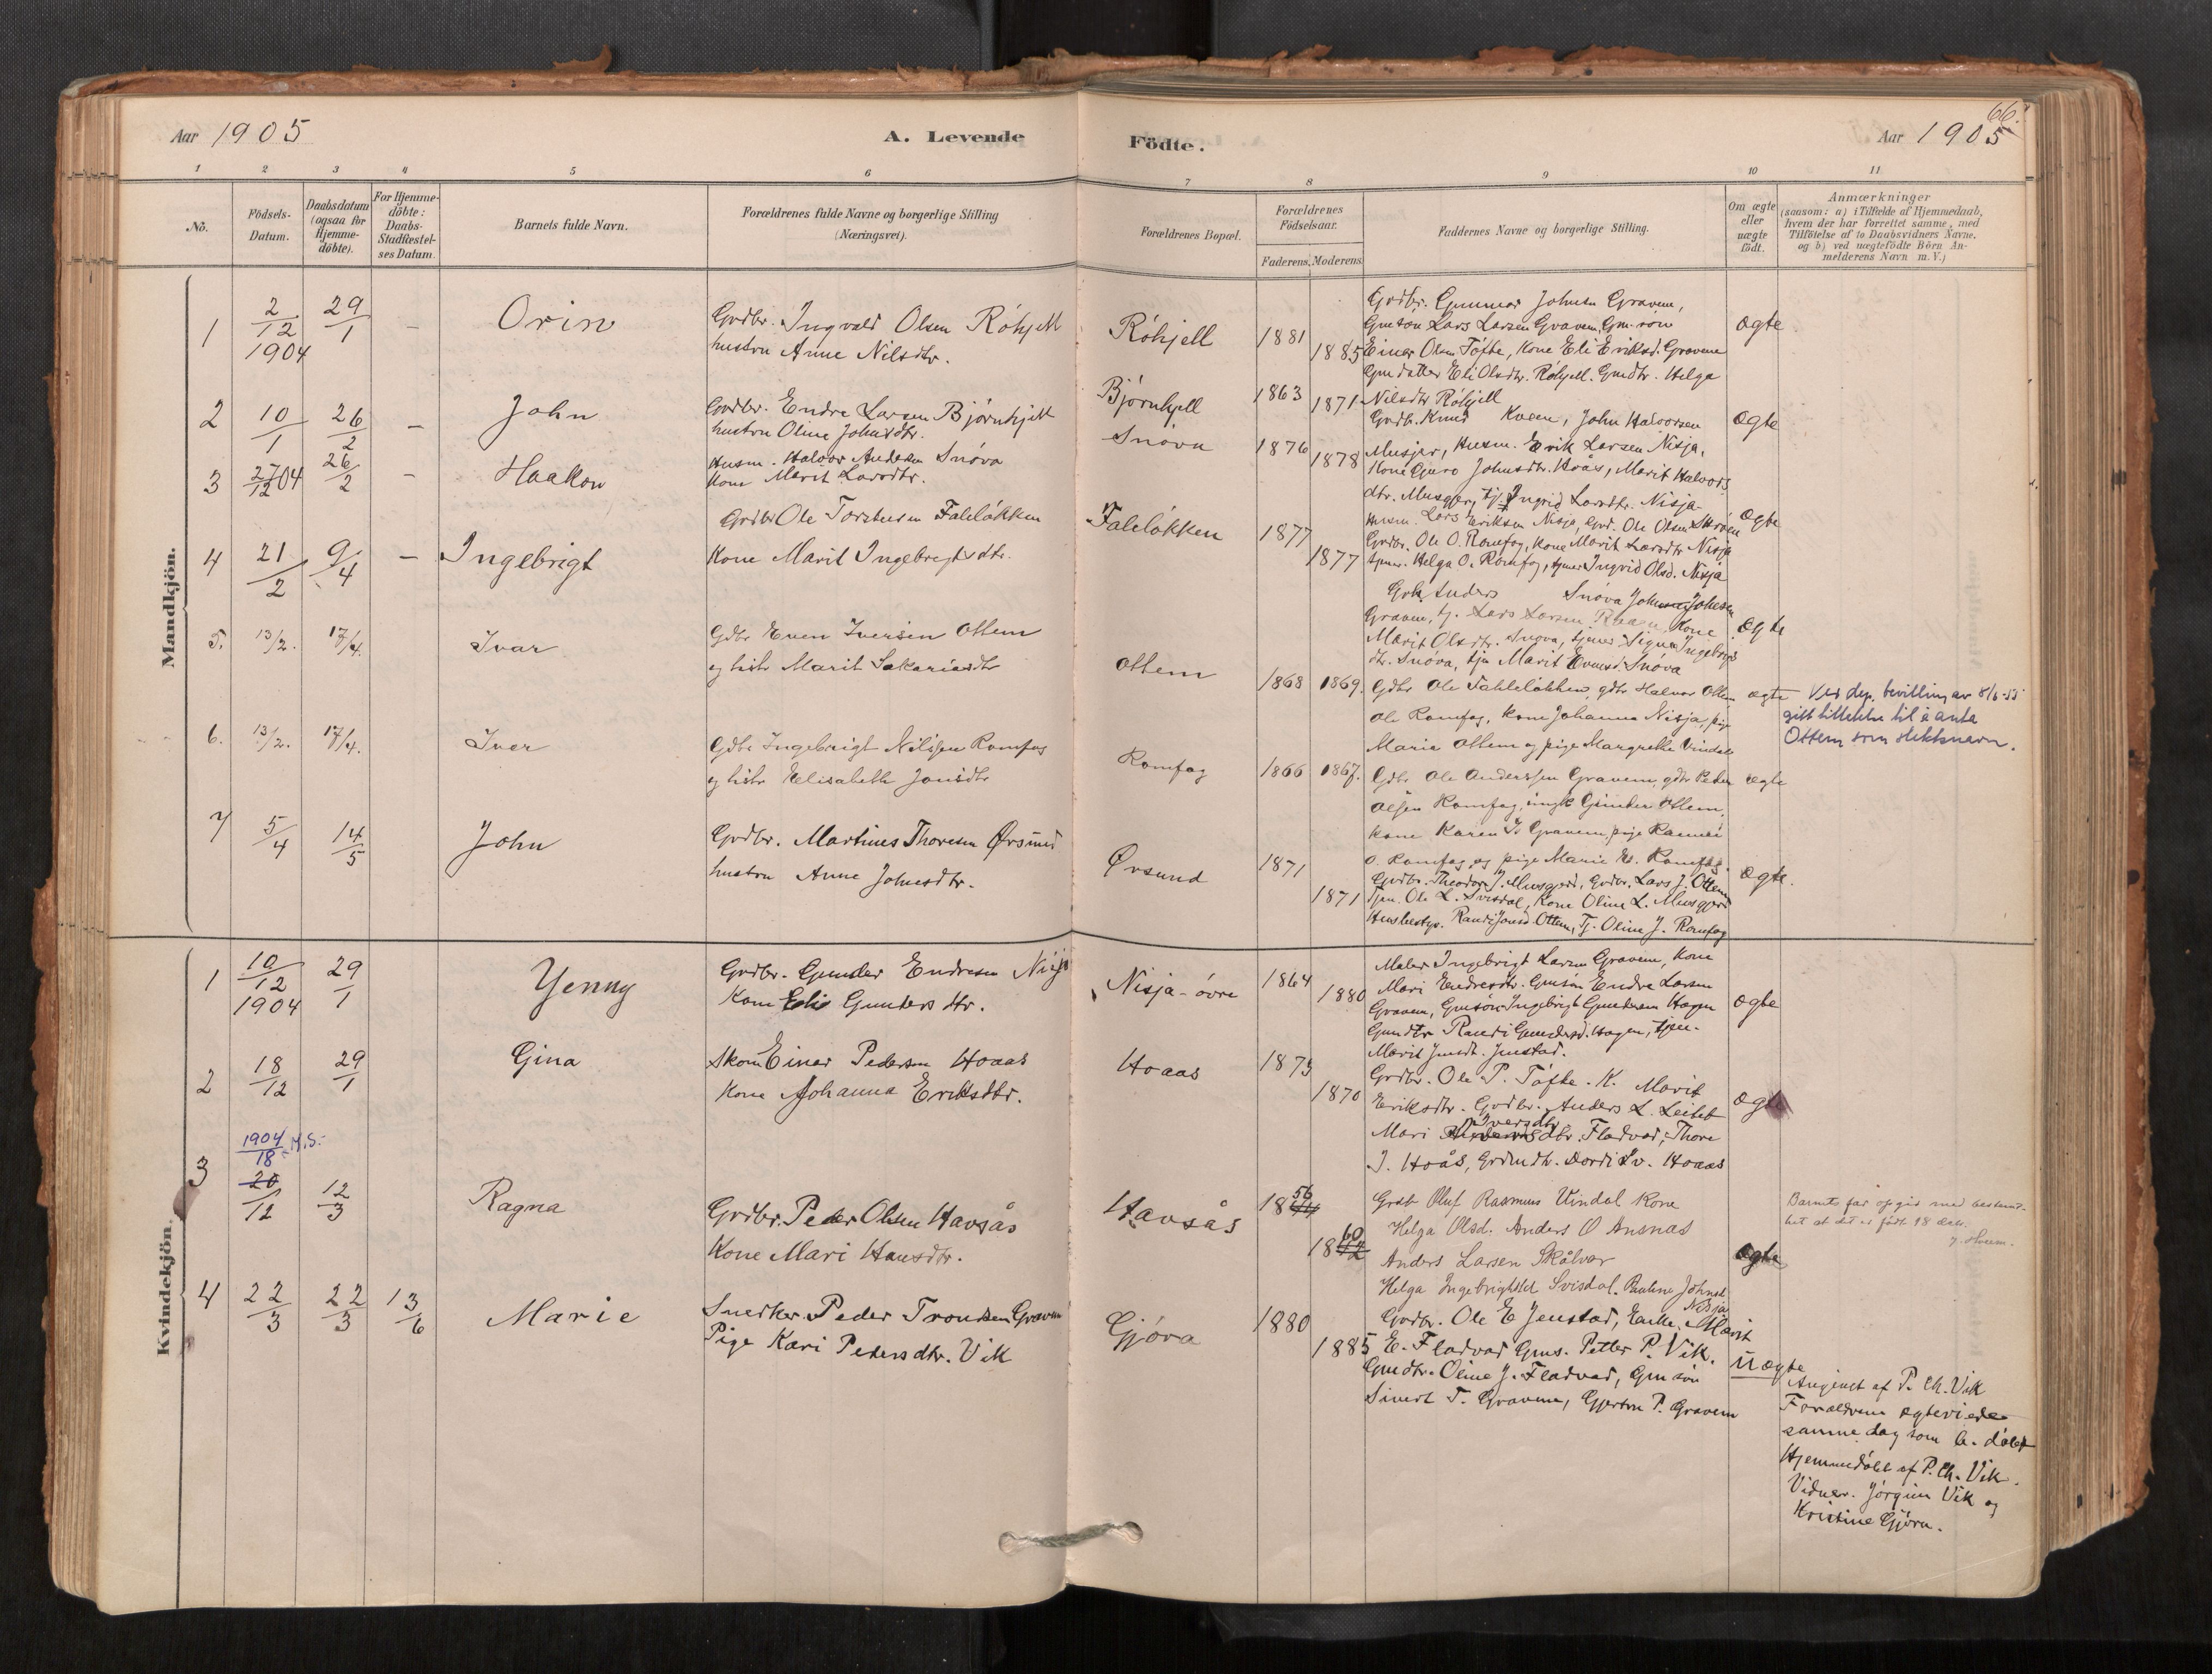 66.
Aar 1905
A. Levende
Födte.
Aar 1905
1 2 3 4 5 6
7 8 9 10 11
No.
Födsels-Datum.
Daabsdatum (ogsaa for Hjemme-döbte).
For Hjemme-döbte: Daabs-Stadfæstel-ses Datum.
Barnets fulde Navn.
Forældrenes fulde Navne og borgerlige Stilling
(Næringsvei).
Forældrenes Bopæl.
Forældrenes Födselsaar.
Faderens. Moderens.
Faddernes Navne og borgerlige Stilling.
Om ægte eller uægte födt.
Anmærkninger
(saasom: a) i Tilfælde af Hjemmedaab,
hvem der har forrettet samme, med
Tilföielse af to Daabsvidners Navne,
og b) ved uægtefödte Börn An-
melderens Navn m. V.)
Mandkjön.
1 2/12 1904 29/1 - Orin
Grdbr. Ingvald Olsen Röhjell
hustru Anne Nilsdtr.
Röhjell 1881 1885
Grdbr. Gunnar Johnsen Gravem,
Gmsön Lars Larsen Gravem, Gm.sön
Einar Olsen Töfte, Kone Eli Eriksd. Gravem
Gmdatter Eli Olsdtr. Röhjell. Gmdtr. Helga
Nilsdtr Röhjell
ægte
2 10/1 26/2 - John
Grdbr. Endre Larsen Björnhjell
hustru Oline Johnsdtr.
Björnhjell 1863 1871
Grdbr. Knud Kveen, John Halvorsen
ægte
3 27/12 04 26/2 - Haakon
Husm. Halvor Andersen Snöva
Kone Marit Larsdtr.
Snöva 1876 1878
Musjer, Husm. Erik Larsen Nisja,
Kone Guro Johnsdtr. Hoås, Marit Halvors
dtr. Musgjer, tj. Ingrid Larsdtr. Nisja
ægte
4 21/2 9/4 - Ingebrigt
Grdbr Ole Torstensen Faleløkken
Kone Marit Ingebrigtsdtr.
Faleløkken 1877 1877
Husm. Lars Eriksen Nisja, Grd. Ole Olsen Skrøen
Grdbr. Ole O. Romfog, Kone Marit Larsdtr Nisja
tjener. Helga O. Romfog, tjener Ingrid Olsd. Nisja
Anders Snöva
Gravem, tj. Lars Larsen
Marit Olsdtr. Snöva, tjener Signe Ingebrigts
dtr. Snöva, tje Marit Snöva
ægte
5. 13/2. 17/4. Ivar
Gdbr Even Iversen Ottem
og hstr Marit Sakariasdtr
Ottem 1868 1869.
Gdbr Ole Faleløkken, gdbr Halvor Ottem
Ole Romfog, kone Johanna Nisja, pige
Maria Ottem og pige Margrethe Vindal
ægte
Ved dep. bevilling av 8/6-55
gitt tillatelse til å anta
Ottem som slektsnavn.
6. 13/2. 17/4. Iver
Gdbr Ingebrigt Nilssen Romfog
og hstr Elisabeth Jonsdtr
Romfog 1866 1867.
Gdbr Ole Anderssen Gravem, gdbr Peder
Olsen Romfog, ungk Gunder Ottem,
kone Karen Gravem, pige
O. Romfog og pige Marie Romfog.
ægte
7 5/4 14/5 John
Grdbr. Martinus Thoresen Ørsund
hustru Anne Johnsdtr.
Ørsund 1871 1871
Grdbr. Theodor J. Musgjerd, Grdbr. Lars J. Ottem
Tjen. Ole L. Svisdal, Kone Oline L. Musgjerd
Husbestyr. Randi Jonsd. Ottem, Tj. Oline J. Romfog
ægte.
Kvindekjön.
1 10/12 1904 29/1 Yenny
Grdbr. Gunder Endresen Nisja
Kone Eli Gunders dtr.
Nisja-övre 1864 1880
Maler Ingebrigt Larsen Gravem, Kone
Mari Endresdtr. Gmsön Endre Larsen
Gravem, Gmsön Ingebrigt Gundersen Hagen
Gmdtr Randi Gundersd. Hagen, tjen.
Marit Jensdt. Jenstad.
ægte
2 18/12 29/1 Gina
Skom Einar Pedersen Hoaas
Kone Johanna Eriksdtr.
Hoaas 1873 1870
Grdbr. Ole P. Töfte. K. Marit
Eriksdtr. Grdbr. Anders L. Leitet
Iversdtr
Mari dtr. Fladvad, Thore
J. Hoås, Grdmdtr. Dordi Hoaas
ægte
3 1904 18 H.S. 20/12 12/3 Ragna
Grdbr. Peder Olsen Havsås
Kone Mari Hansdtr.
Havsås 1856 1860
Grdb Oluf Rasmus Vindal Kone
Helga Olsd. Anders O Ansnas
Anders Larsen Skålvar
Helga Ingebrigtsdt Svisdal. Pauline Johnsd
Nisja
ægte
Barnets far opgir med bestemt-
het at det er født 18 des.
4 22/3 22/3 13/6 Marie
Snedker Peder Trondsen Gravem
Pige Kari Pedersdtr. Vik
Gjöra 1880 1885
Grdbr. Ole E Jenstad, Enke Marit
E. Fladvad Gms. Petter P. Vik.
Gmdtr. Oline J. Fladvad, Gmsön
Sivert T. Gravem, Gjertru P. Gravem
uægte
Angivet af P. Ch. Vik
Forældrene ægteviede
samme dag som b. döbt
Hjemmedöbt af P. Ch. Vik.
Vidner. Jörgine Vik og
Kristine Gjöra.